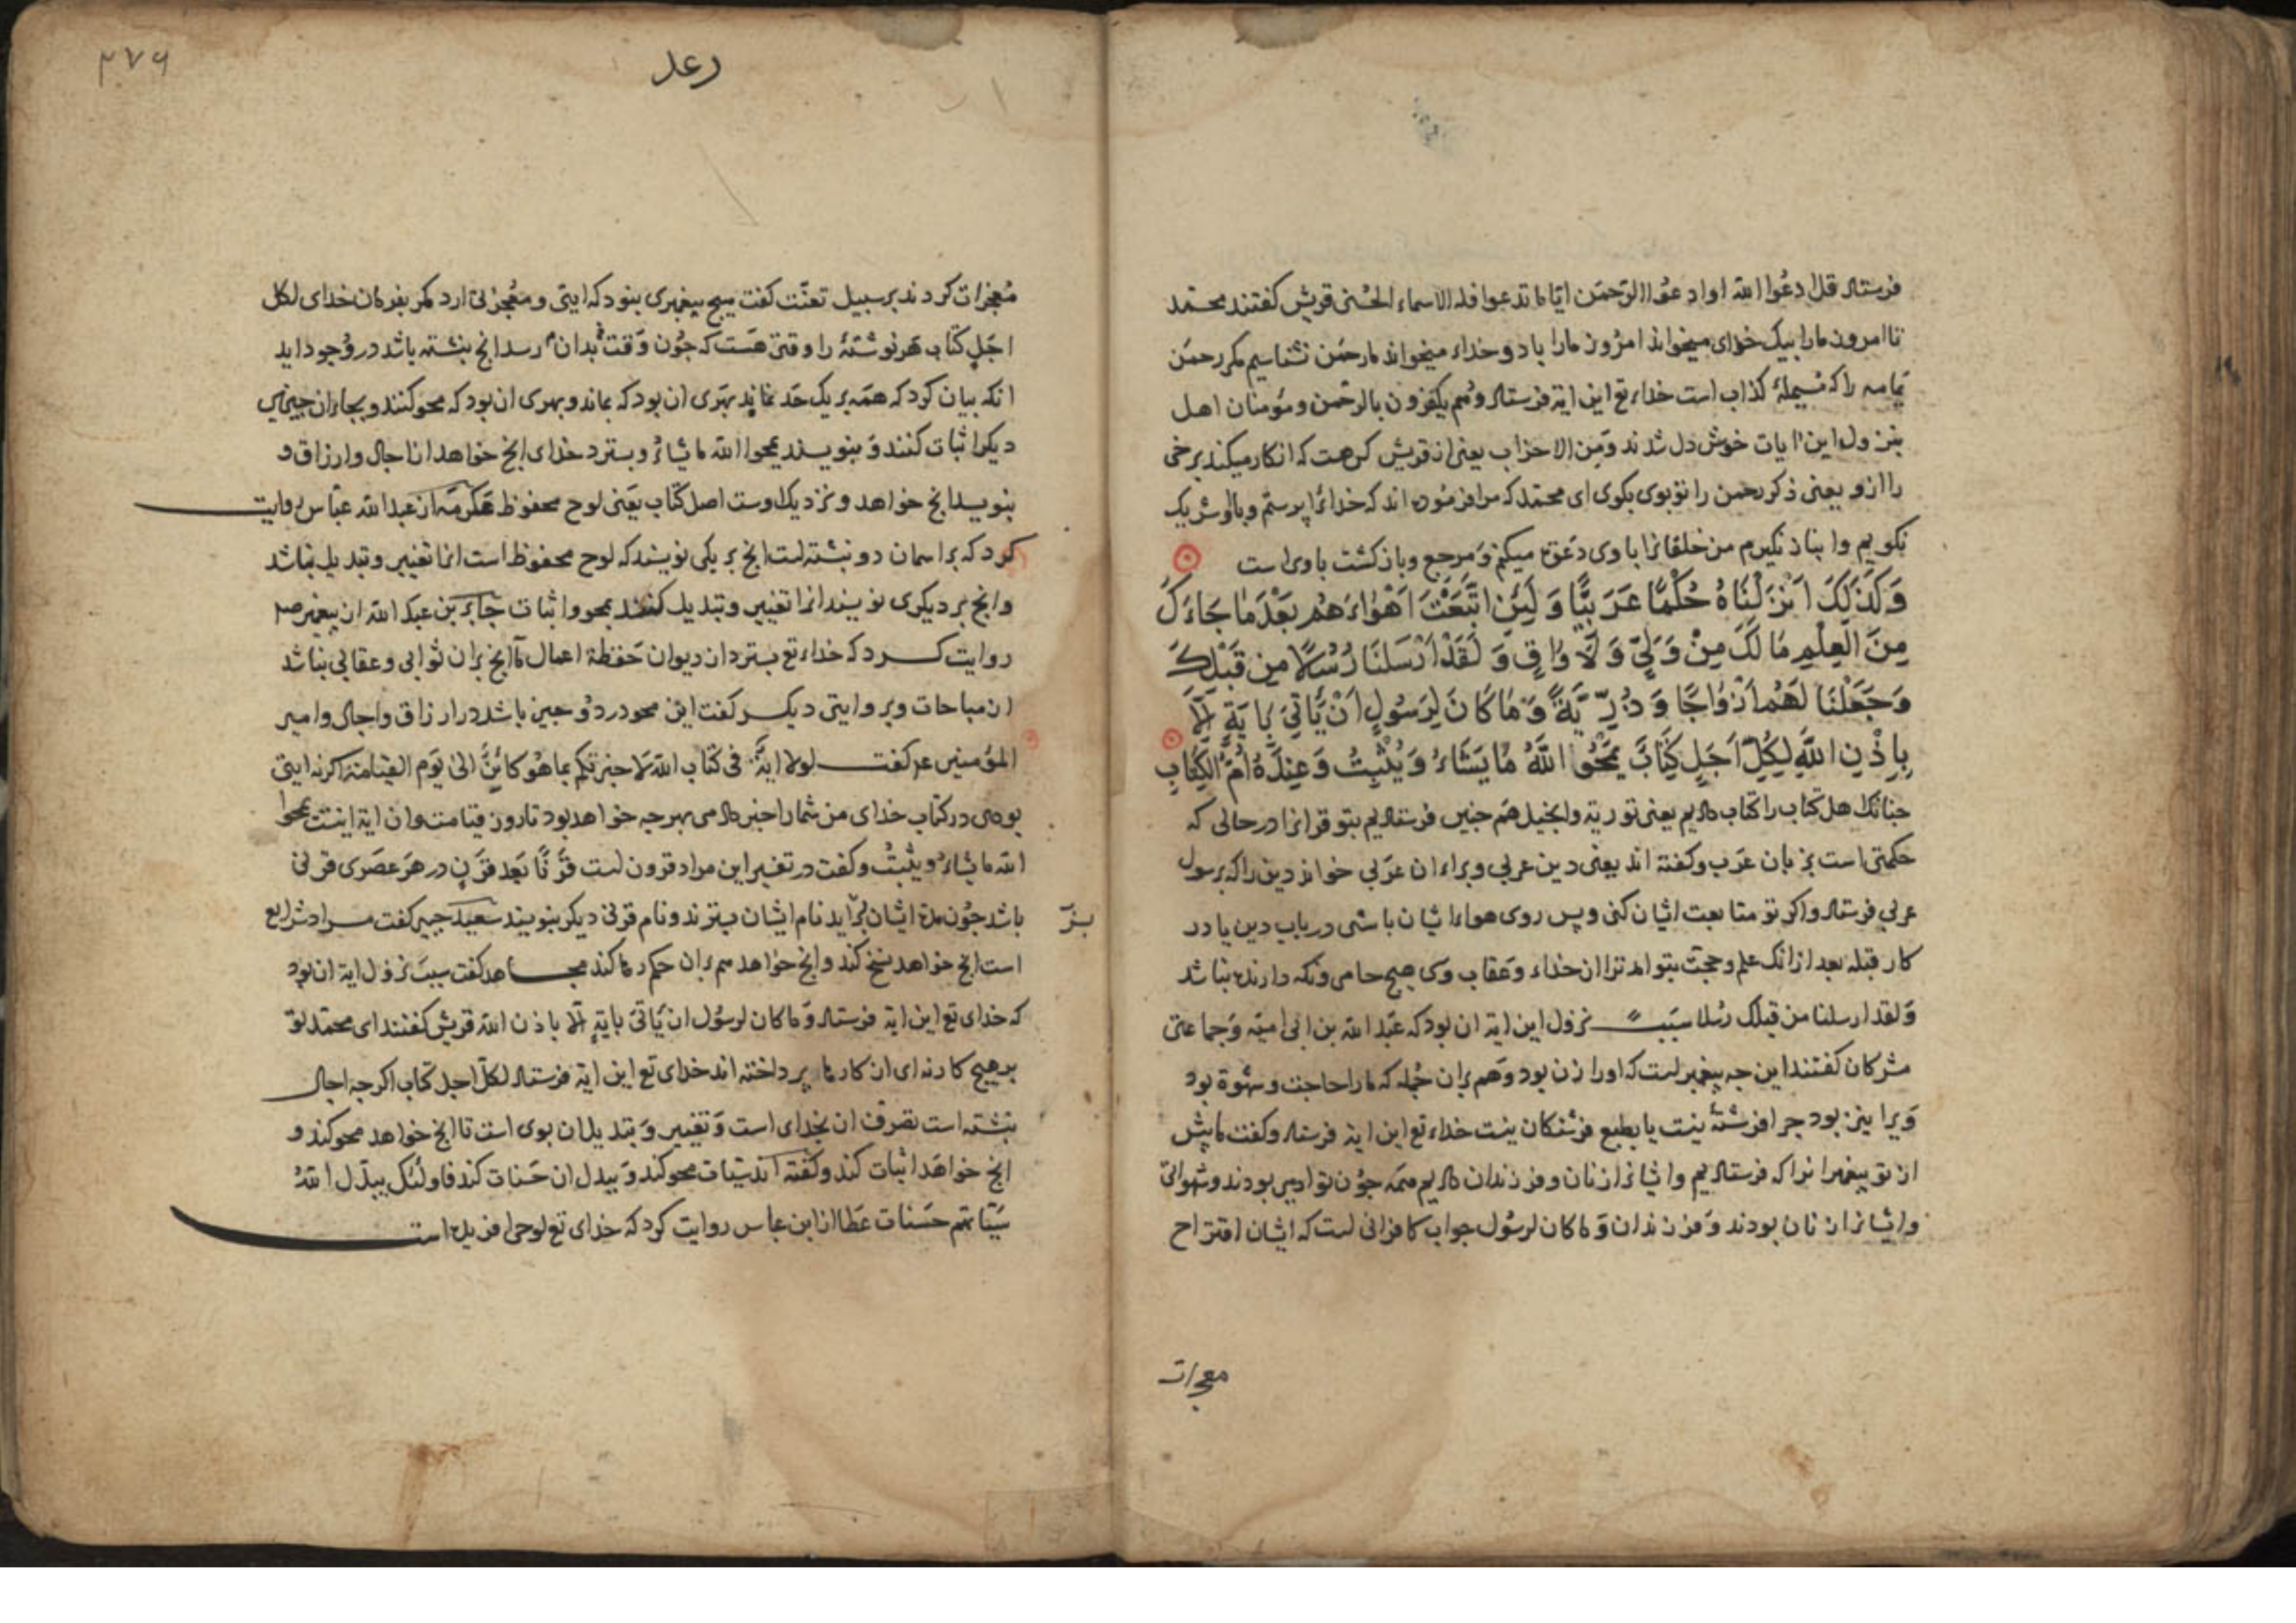 فرستاد قل ادعوا الله او ادعوا الرحمن ایاما تدعوا فله الاسماء الحسنی قریش گفتند محمد
تا امروز مارا بیک خدای میخواند امروز مارا باد و خداء میخواند ما رحمن نشناسیم مکر رحمن
یمامه را که مسیلمهٔ کذاب است خداء تع این ایة فرستاد و هم یکفرون بالرحمن و مؤمنان اهل
بنزول این ایات خوش دل شدند و من الاحزاب یعنی از قریش کس هست که انکار میکند برخی
را ازو یعنی ذکر رحمن را تو بوی بکوی ای محمد که مرا فرموده اند که خدائرا پرستم و باوی شریک
نکویم و انباز نکیرم من خلقانرا باوی دعوت میکنم و مرجع و بازکشت باوی است
وَكَذَلِكَ اَنْزَلْنَاهُ حُكْمًا عَرَبِيًّا وَلَئِنِ اتَّبَعْتَ اَهْوَاءَهُمْ بَعْدَ مَا جَاءَكَ
مِنَ الْعِلْمِ مَا لَكَ مِنْ وَلِيٍّ وَلَا وَاقٍ وَلَقَدْ اَرْسَلْنَا رُسُلًا مِنْ قَبْلِكَ
وَجَعَلْنَا لَهُمْ اَزْوَاجًا وَذُرِّيَّةً وَمَا كَانَ لِرَسُولٍ اَنْ يَّأْتِيَ بِايَةٍ اِلَّا
بِاِذْنِ اللَّهِ لِكُلِّ اَجَلٍ كِتَابٌ يَمْحُوا اللَّهُ مَا يَشَاءُ وَيُثْبِتُ وَعِنْدَهُ اُمُّ الْكِتَابِ
جنانک اهل کتاب را کتاب دادیم یعنی توریة و انجیل هم جنین فرستادیم بتو قرانرا در حالی که
حکمتی است بزبان عرب و کفته اند یعنی دین عربی و براء ان عربی خواند دین را که برسول
عربی فرستاد و اکر تو متابعت ایشان کنی و پس روی هواء ایشان باشی در باب دین یا در
کار قبله بعد از انک علم و حجت بتو امد ترا از خداء و عقاب وی هیچ حامی و نکه دارنده نباشد
و لقد ارسلنا من قبلک رسلا سبب نزول این ایة ان بود که عبد الله بن ابی امیه و جماعتی
مشرکان کفتند این جه پیغمبر است که اورا زن بود و هم بران جمله که مارا حاجت و شهوة بود
ویرا نیز بود جرا فرشتهٔ نیست یا بطبع فرشتکان نیست خداء تع این ایة فرستاد و کفت ما پیش
از تو پیغمبرانرا که فرستادیم و ایشانرا زنان و فرزندان دادیم همه جون تو ادمی بودند و شهوانی
و ایشانرا زنان بودند و فرزندان و ما کان لرسول جواب کافرانی است که ایشان اقتراح
معجزات
۳۷۶
رعد
معجزات کردند بر سبیل تعنت کفت هیچ پیغمبری نبود که ایتی و معجزتی ارد مکر بفرمان خدای لکل
اجل کتاب هر نوشتهٔ را وقتی هست که جون وقت بدان رسد انچ بنشته باشد در وجود اید
انکه بیان کرد که همه بر یک حد نماند بهری ان بود که بماند و بهری ان بود که محو کنند و بجاء ان جیزهای
دیکر اثبات کنند و بنویسند یمحوا الله ما یشاء و بسترد خدای انچ خواهد از اجال و ارزاق و
بنویسد انچ خواهد و نزدیک اوست اصل کتاب یعنی لوح محفوظ عکرمه از عبد الله عباس روایت
کرد که بر اسمان دو نبشته است انچ بر یکی نویسند که لوح محفوظ است انرا تغییر و تبدیل نباشد
و انچ بر دیکری نویسند انرا تغییر و تبدیل کنند بمحو و اثبات جابر بن عبد الله از پیغمبر صم
روایت کرد که خداء تع بسترد از دیوان حفظة اعمال انچ بران ثوابی و عقابی نباشد
از مباحات و بروایتی دیکر کفت این محو در دو جیز باشد در ارزاق و اجال و امیر
المؤمنین ع کفت لولا ایة فی کتاب الله لاخبرتکم بما هو کائن الی یوم القیامة اکر نه ایتی
بودی در کتاب خدای من شمارا خبر دادمی بهر جه خواهد بود تا روز قیامت و ان ایة اینست یمحوا
الله ما یشاء و یثبت و کفت در تفسیر این مراد قرون است قرنا بعد قرن در هر عصری قرنی
باشد جون مدة ایشان براید نام ایشان بسترند و نام قرنی دیکر بنویسند سعید جبیر کفت مراد شرایع
است انچ خواهد نسخ کند و انچ خواهد هم بران حکم رها کند مجاهد کفت سبب نزول ایة ان بود
که خدای تع این ایة فرستاد و ما کان لرسول ان یاتی بایة الا باذن الله قریش کفتند ای محمد تو
بر هیچ کار نه ای ان کارها پرداخته اند خدای تع این ایة فرستاد لکل اجل کتاب اکرجه اجال
نبشته است تصرف ان بخدای است و تغییر و تبدیل ان بوی است تا انچ خواهد محو کند و
انچ خواهد اثبات کند و کفته اند سیئات محو کند و ببدل ان حسنات کند فاولئک یبدل الله
سیئاتهم حسنات عطا از ابن عباس روایت کرد که خدای تع لوحی افریده است